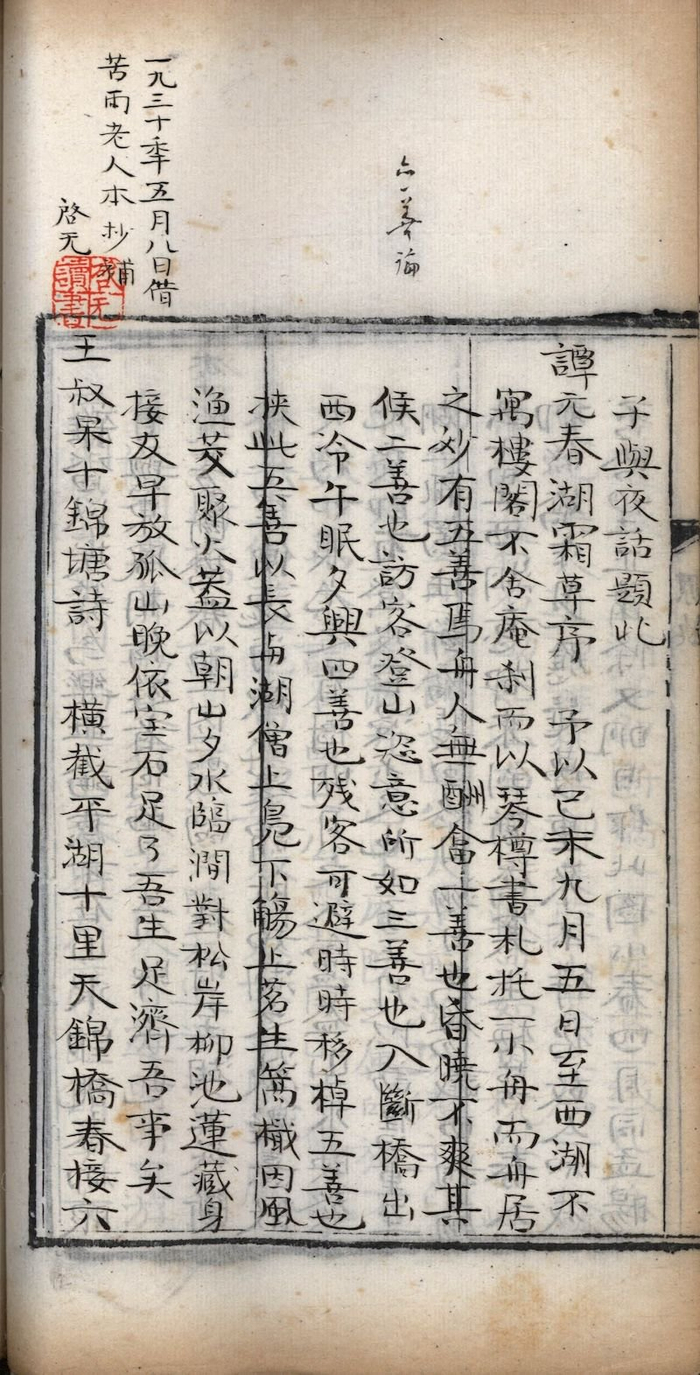 子與夜話題此
譚元春湖霜草序 予以己未九月五日至西湖不
寓樓閣不舍庵刹而以琴樽書札托一小舟而舟居
之妙有五善焉舟人無酬畣一善也昏曉不爽其
候二善也訪客登山恣意所如三善也入斷橋出
西泠午眠夕興四善也残客可避時時移棹五善也
挟此五善以長与湖僧上凫下觴止茗生篙檝因風
渔茭聚火蓋以朝山夕水臨澗對松岸柳池蓮藏身
接友早放孤山晚依宝石足了吾生足濟吾事矣
王叔杲十錦塘詩 横截平湖十里天錦橋春接六
一九三十年五月八日借
苦雨老人本抄補
啓无
啓无讀書